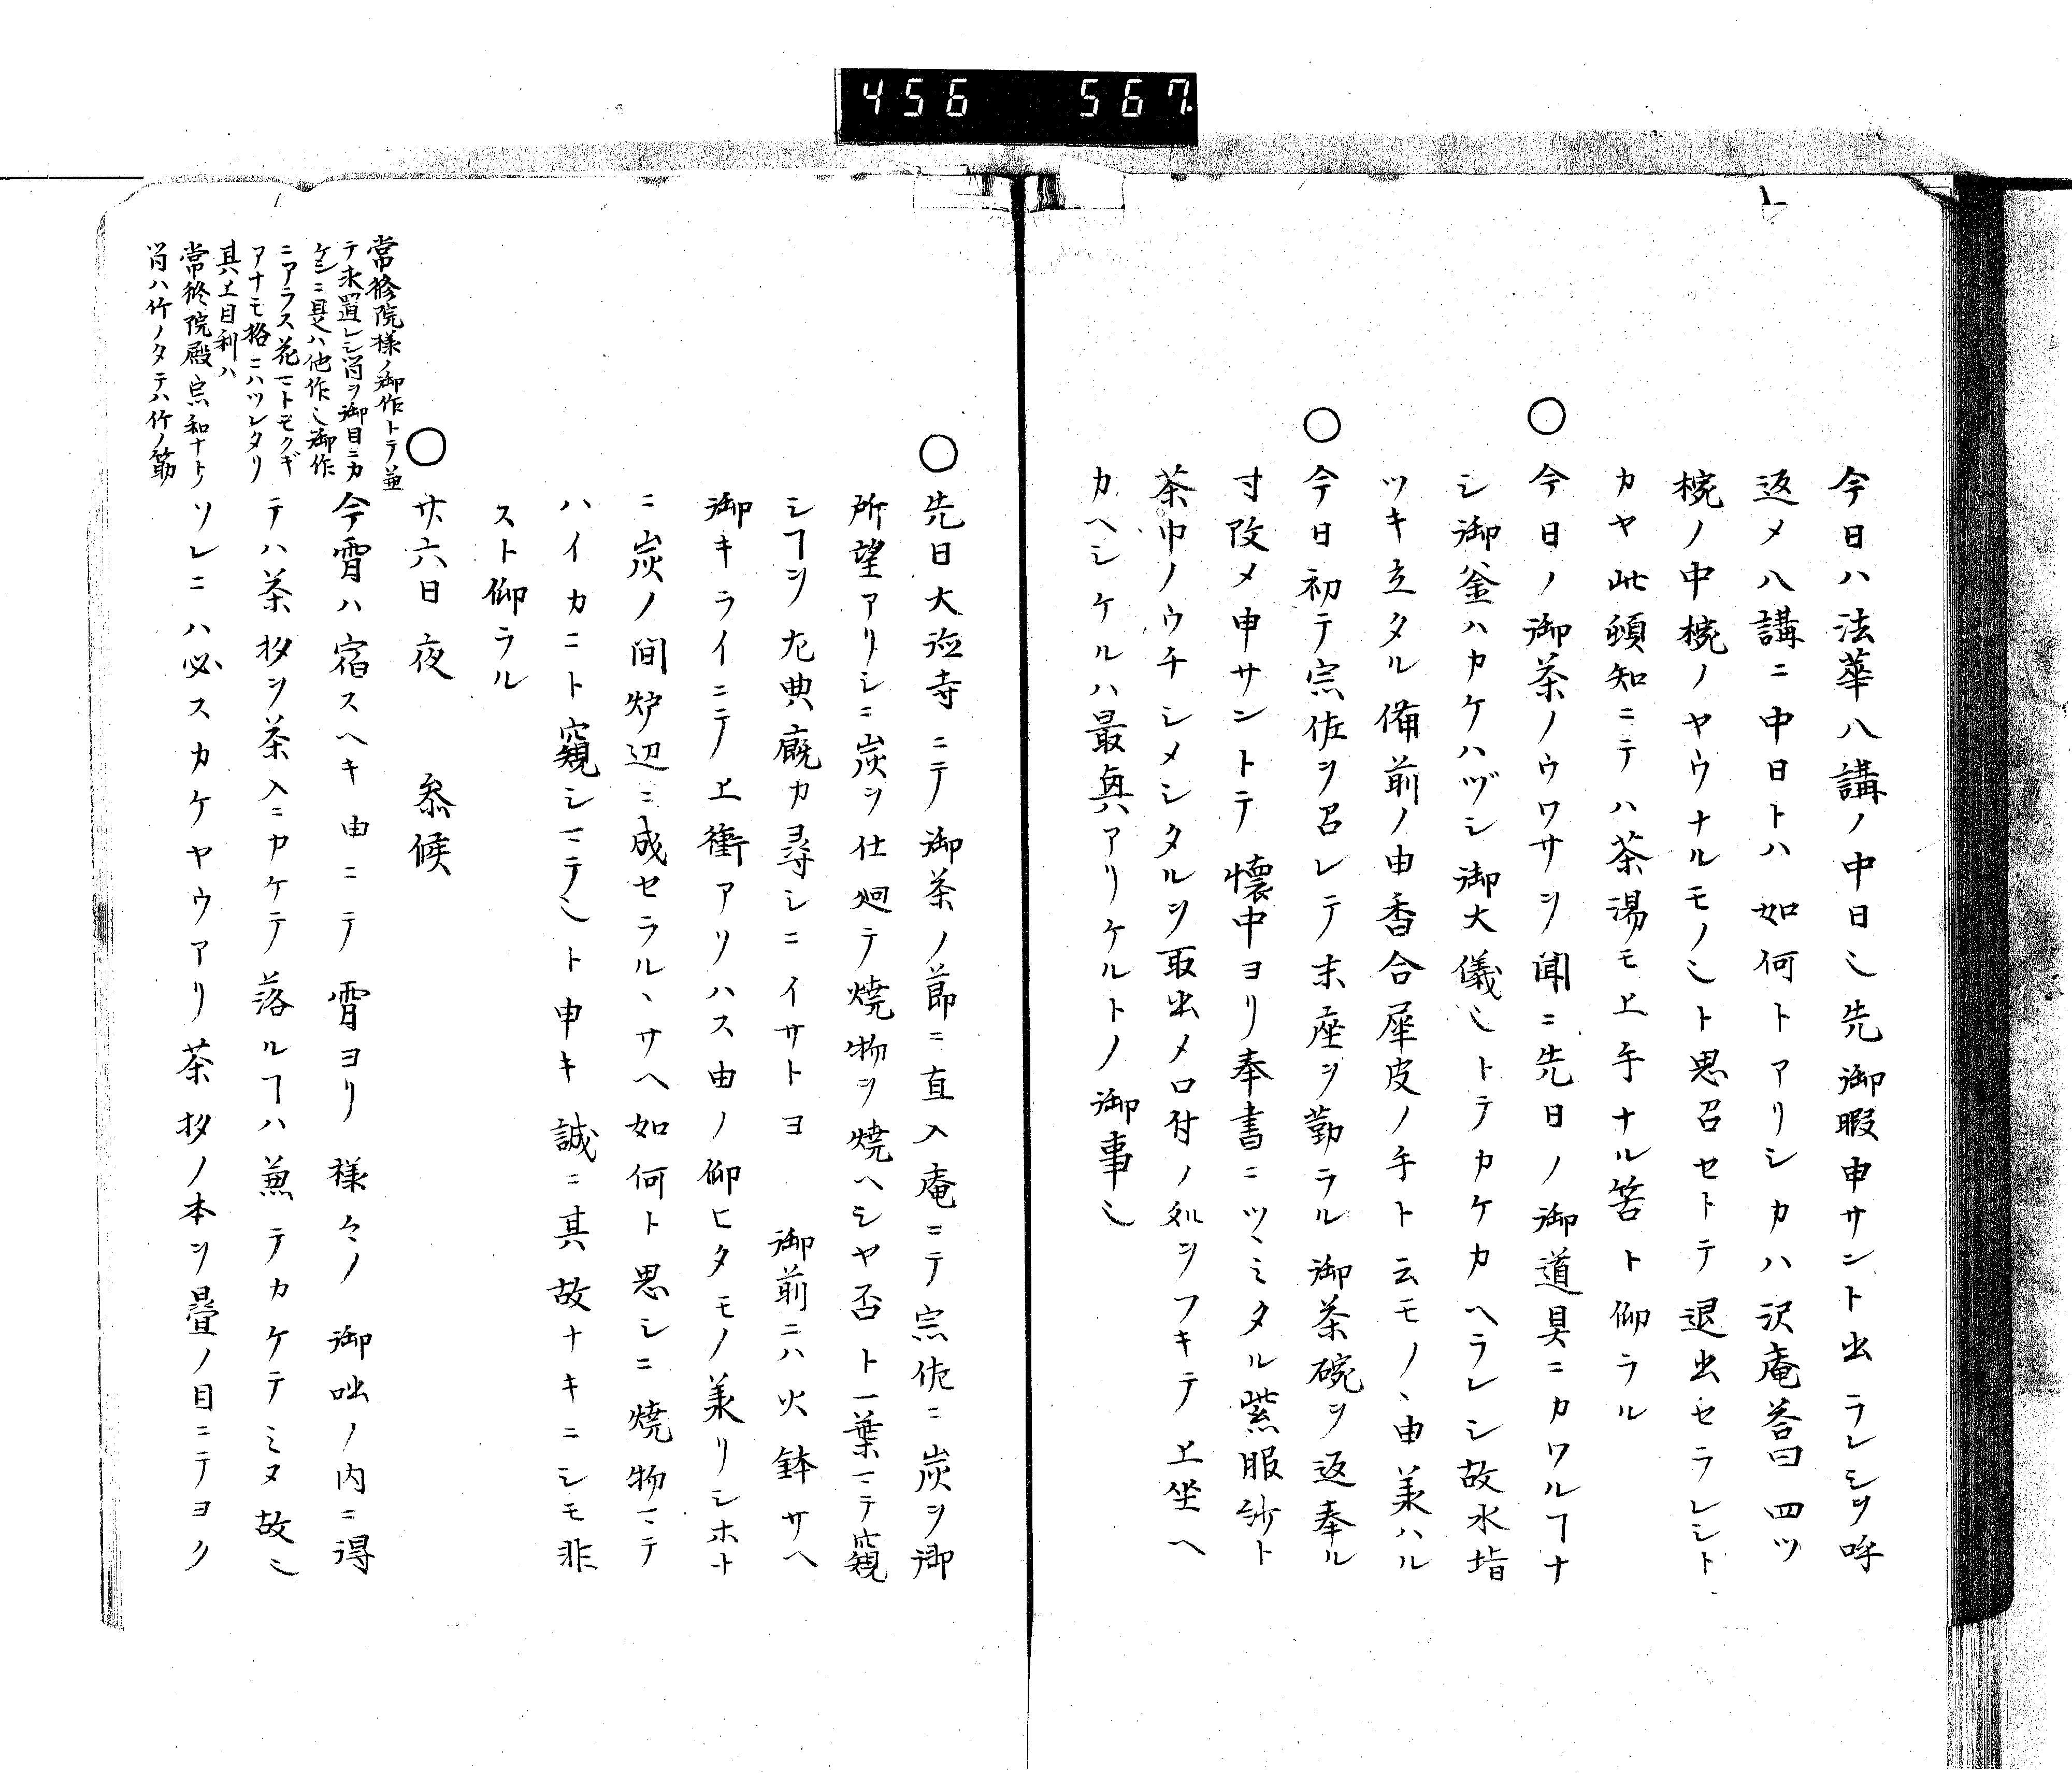 456 567
今日ハ法華八講ノ中日〆先御暇申サント出ラレシヲ呼
返メ八講ニ中日トハ如何トアリシカハ沢庵答曰四ツ
椀ノ中椀ノヤウナルモノ〆ト思召セトテ退出セラレシト
カヤ此頓知ニテハ茶湯モ上手ナル筈ト仰ラル
○今日ノ御茶ノウワサヲ聞ニ先日ノ御道具ニカワルヿナ
シ御釜ハカケハヅシ御大儀〆トテカケカヘラレシ故水指
ツキ立タル備前ノ由香合犀皮ノ手ト云モノヽ由羨ハル
○今日初テ宗佐ヲ召レテ末座ヲ勤ラル御茶碗ヲ返奉ル
寸改メ申サントテ懐中ヨリ奉書ニツヽミタル紫服紗ト
茶巾ノウチシメシタルヲ取出メ口付ノ処ヲフキテ上坐ヘ
カヘシケルハ最興アリケルトノ御事〆
○先日大徳寺ニテ御茶ノ節ニ直入庵ニテ宗佐ニ炭ヲ御
所望アリシニ炭ヲ仕廻テ焼物ヲ焼ヘシヤ否ト一葉マテ窺
シヿヲ尤典厩カ尋シニイサトヨ 御前ニハ火鉢サヘ
御キライニテ上衝アリハス由ノ仰ヒタモノ羨リシホト
ニ炭ノ間炉辺ニ成セラルヽサヘ如何ト思シニ焼物マテ
ハイカニト窺シマテ〆ト申キ誠ニ其故ナキニシモ非
スト仰ラル
○廿六日夜 参候
今宵ハ宿スヘキ由ニテ宵ヨリ様々ノ御咄ノ内ニ得
テハ茶杓ヲ茶入ニカケテ落ルヿハ兼テカケテミヌ故〆
ソレニハ必スカケヤウアリ茶杓ノ本ヲ畳ノ目ニテヨク
常修院様ノ御作トテ並
テ求置レシ筒ヲ御目ニカ
ケシニ是ハ他作〆御作
ニアラス花マトモクギ
アナモ格ニハツレタリ
其上目利ハ
常修院殿宗和ナト
筒ハ竹ノタテハ竹ノ筋